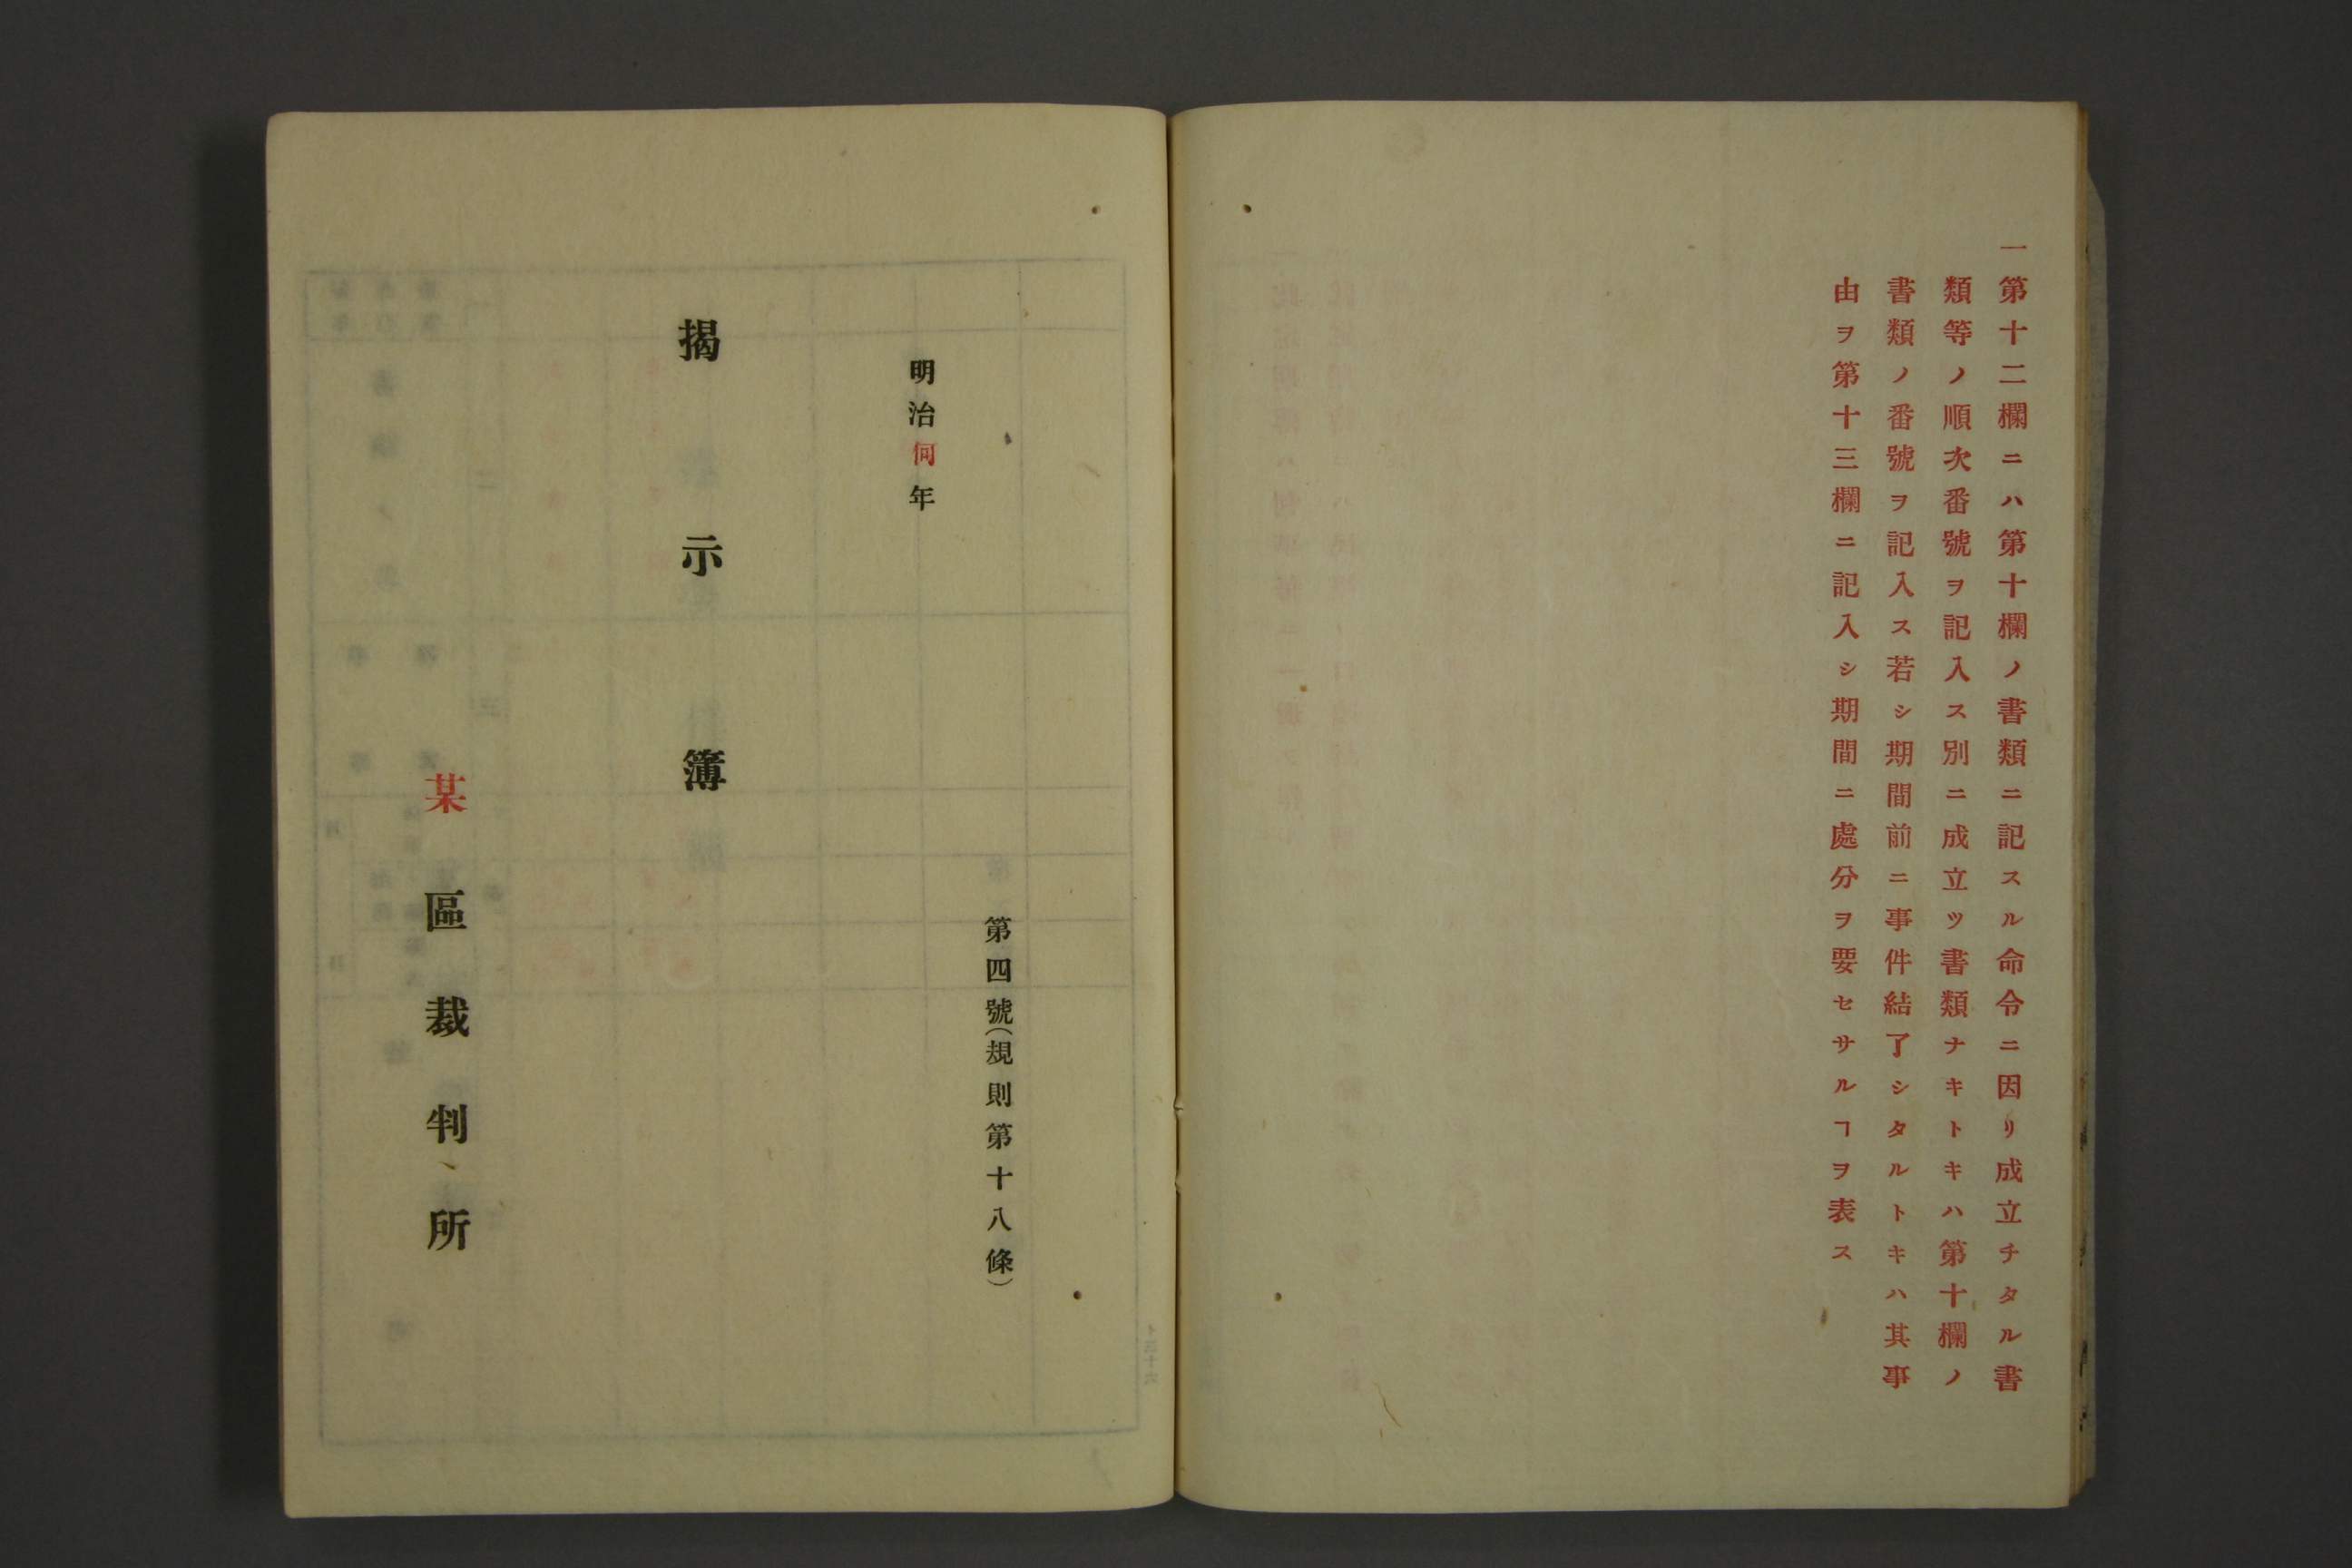 一第十二欄ニハ第十欄ノ書類ニ記スル命令ニ因リ成立チタル書
類等ノ順次番號ヲ記入ス別ニ成立ツ書類ナキトキハ第十欄ノ
書類ノ番號ヲ記入ス若シ期間前ニ事件結了シタルトキハ其事
由ヲ第十三欄ニ記入シ期間ニ處分ヲ要セサルヿヲ表ス
第四號(規則第十八條)
明治何年
揭示簿
某區裁判、所